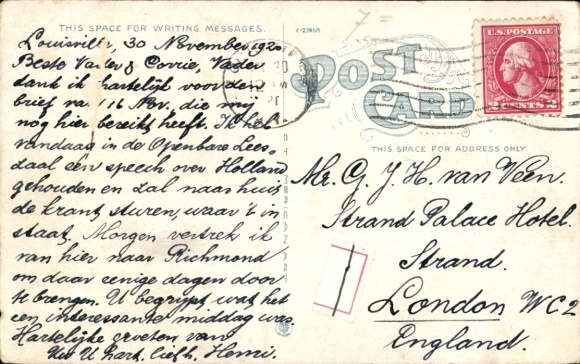 THIS SPACE FOR WRITING MESSAGES.
Louisville, 30 November 1920
Beste Vader & Corrie, Vader
dank ik hartelijk voor den
brief van 16 Nov., die mij
nog hier bereikt heeft. Ik heb
vandaag in de Openbare Lees-
zaal één speech over Holland
gehouden en zal naar huis
de krant sturen, waar 't in
staat. Morgen vertrek ik
van hier naar Richmond
om daar eenige dagen door
te brengen. U begrijpt wat het
een interessante middag was.
Hartelijke groeten van
Uw U hart. liefh. Henri.
POST
CARD
THIS SPACE FOR ADDRESS ONLY.
U.S. POSTAGE
2 CENTS 2
Mr. G. J. H. van Veen.
Strand Palace Hotel.
Strand.
London WC2
England.